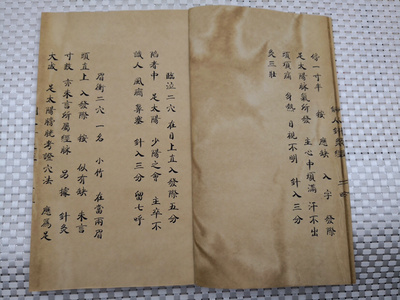 傍一寸半 按 應缺 入字 發際
是太陽脉氣所發 主心中煩滿 汗不出
項痛 身熱 目視不明 針入三分
灸三壯
臨泣二穴 在目上直入發際五分
陷者中 是太陽 少陽之會 主卒不
識人 風癇 鼻塞 針入三分 留七呼
眉衝二穴 一名 小竹 在當兩眉
頭直上 入發際 按 似有缺 未言
寸數 亦未言所屬經脉 另據 針灸
大成 是太陽膀胱考證穴法 應爲足